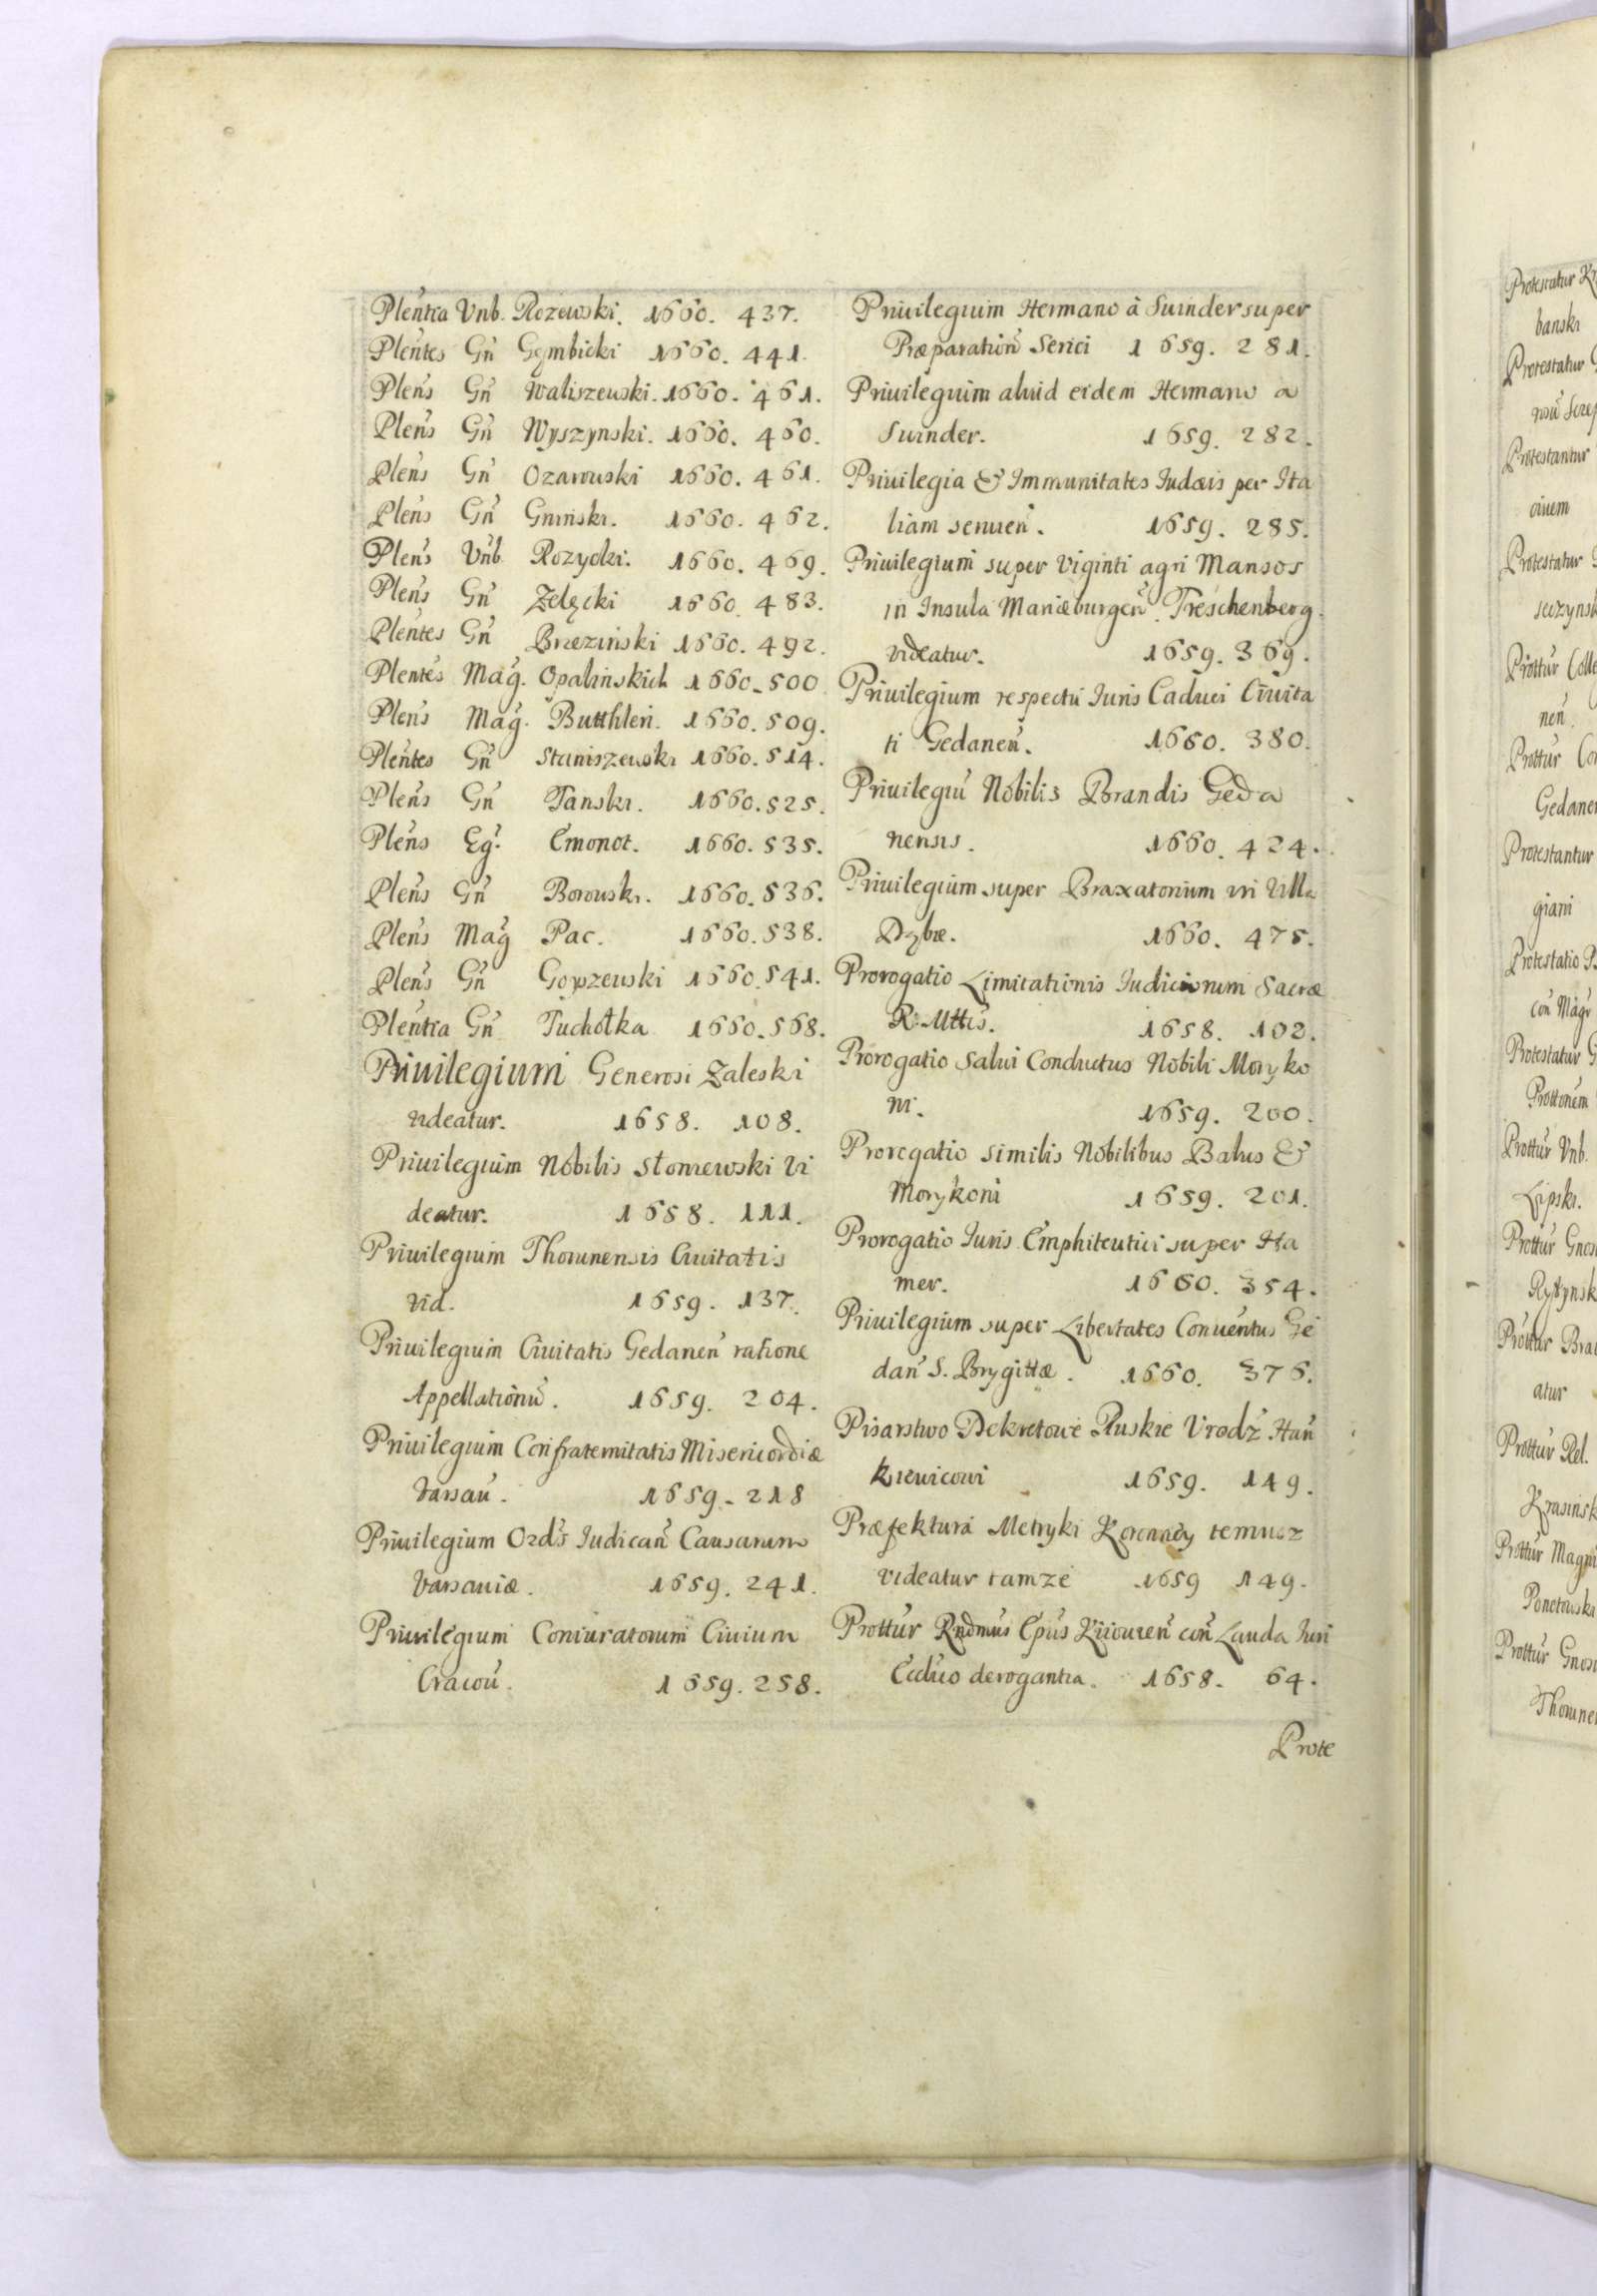 Plentia Vnb. Rozewski. 1660. 437.
Plentes Gń Gembicki 1660. 441.
Pleńs Gń Waliszewski. 1660. 461.
Pleńs Gń Wyszynski. 1660. 460.
Pleńs Gń Ozarowski 1660. 461.
Pleńs Gń Gninski. 1660. 462.
Pleńs Vnb. Rozycki. 1660. 469.
Pleńs Gń Zelęcki 1660. 483.
Plentes Gń Brzezinski 1660. 492.
Plentes Mag. Opalinskich 1660. 500
Pleńs Mag. Butthleri. 1660. 509.
Plentes Gń Staniszewski 1660. 514.
Pleńs Gń Tanski. 1660. 525.
Pleńs Eg. Emonot. 1660. 535.
Pleńs Gń Borowski. 1660. 536.
Pleńs Mag Pac. 1660. 538.
Pleńs Gń 1660. 541.
Plentia Gń Tuchołka 1660. 568.
Priuilegium Generosi Zaleski
videatur. 1658. 108.
Priuilegium Nobilis Słoniewski vi
deatur. 1658. 111.
Priuilegium Thorunensis Ciuitatis
vid. 1659. 137.
Priuilegium Ciuitatis Gedaneń ratione
Appellationū. 1659. 204.
Priuilegium Confraternitatis Misericordiæ
Varsau. 1659. 218
Priuilegium Ord's Iudicań Causarum
Varsauiæ. 1659. 241.
Priuilegium Coniuratorum Ciuium
Cracou. 1659. 258.
Priuilegium Hermano à Suinder super
Præparationé Serici 1659. 281.
Priuilegium aliud eidem Hermano a
Suinder. 1659. 282.
Priuilegia & Immunitates Iudæis per Ita
liam seruień. 1659. 285.
Priuilegium super Viginti agri Mansos
in Insula Mariæburgeń. Treschenberg.
videatur. 1659. 369.
Priuilegium respectu Iuris Caduci Ciuita
ti Gedaneń. 1660. 380.
Priuilegiū Nobilis Brandis Geda
nensis. 1660. 424.
Priuilegium super Braxatorium in Villa
Dybæ. 1660. 475.
Prorogatio Limitationis Iudiciorum Sacræ
R. Mttis. 1658. 102.
Prorogatio Salui Conductus Nobili Moryko
ni. 1659. 200.
Prorogatio similis Nobilibus Balus &
Morykoni 1659. 201.
Prorogatio Iuris Emphiteutici super Ha
mer. 1660. 354.
Priuilegium super Libertates Conuentus Ge
dań S. Brygittæ. 1660. 376.
Pisarstwo Dekretowe Ruskie Vrodz Hań
kiewicowi 1659. 149.
Præfektura Metryki Koronney temusz
videatur tamze 1659 149.
Prottur Rndmus Epus Kiiouień coń Lauda Iuri
Ecdico derogantia. 1658. 64.
Prote
Protestatur
banski
Protestatur
Protestantur
Protestatur
Prottur Colle
neń.
Prottur Con
Gedane
Protestantur
giani
Protestatio
coń Magr
Protestatur G
Prottonem
Prottur Vnb.
Lipski.
Prottur Gnos
Prottur Bra
atur
Prottur Rel.
Krasinsk
Prottur Magni
Ponetowski
Prottur Gnos
Thorune